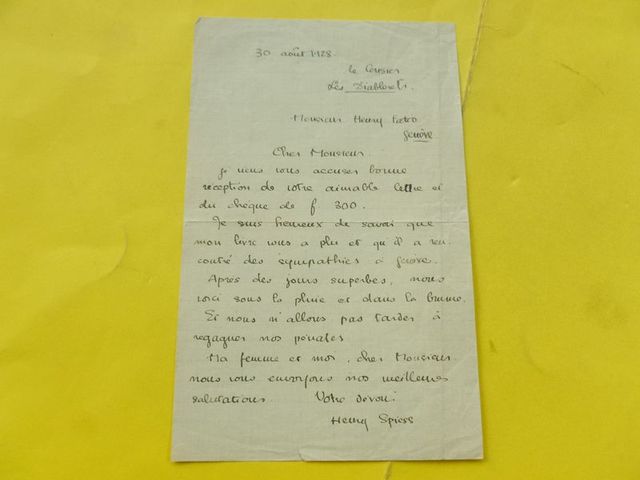 30 août 1928.
le Cerisier
Les Diablerets.
Monsieur Henry
Genève
Cher Monsieur
je viens vous accuser bonne
réception de votre aimable lettre et
du chèque de f 300.
Je suis heureux de savoir que
mon livre vous a plu et qu'il a ren-
contré des sympathies à Genève.
Après des jours superbes, nous
voici sous la pluie et dans la brume.
Et nous n'allons pas tarder à
regagner nos pénates
Ma femme et moi, cher Monsieur
nous vous envoyons nos meilleures
salutations Votre dévoué
Henry Spiess